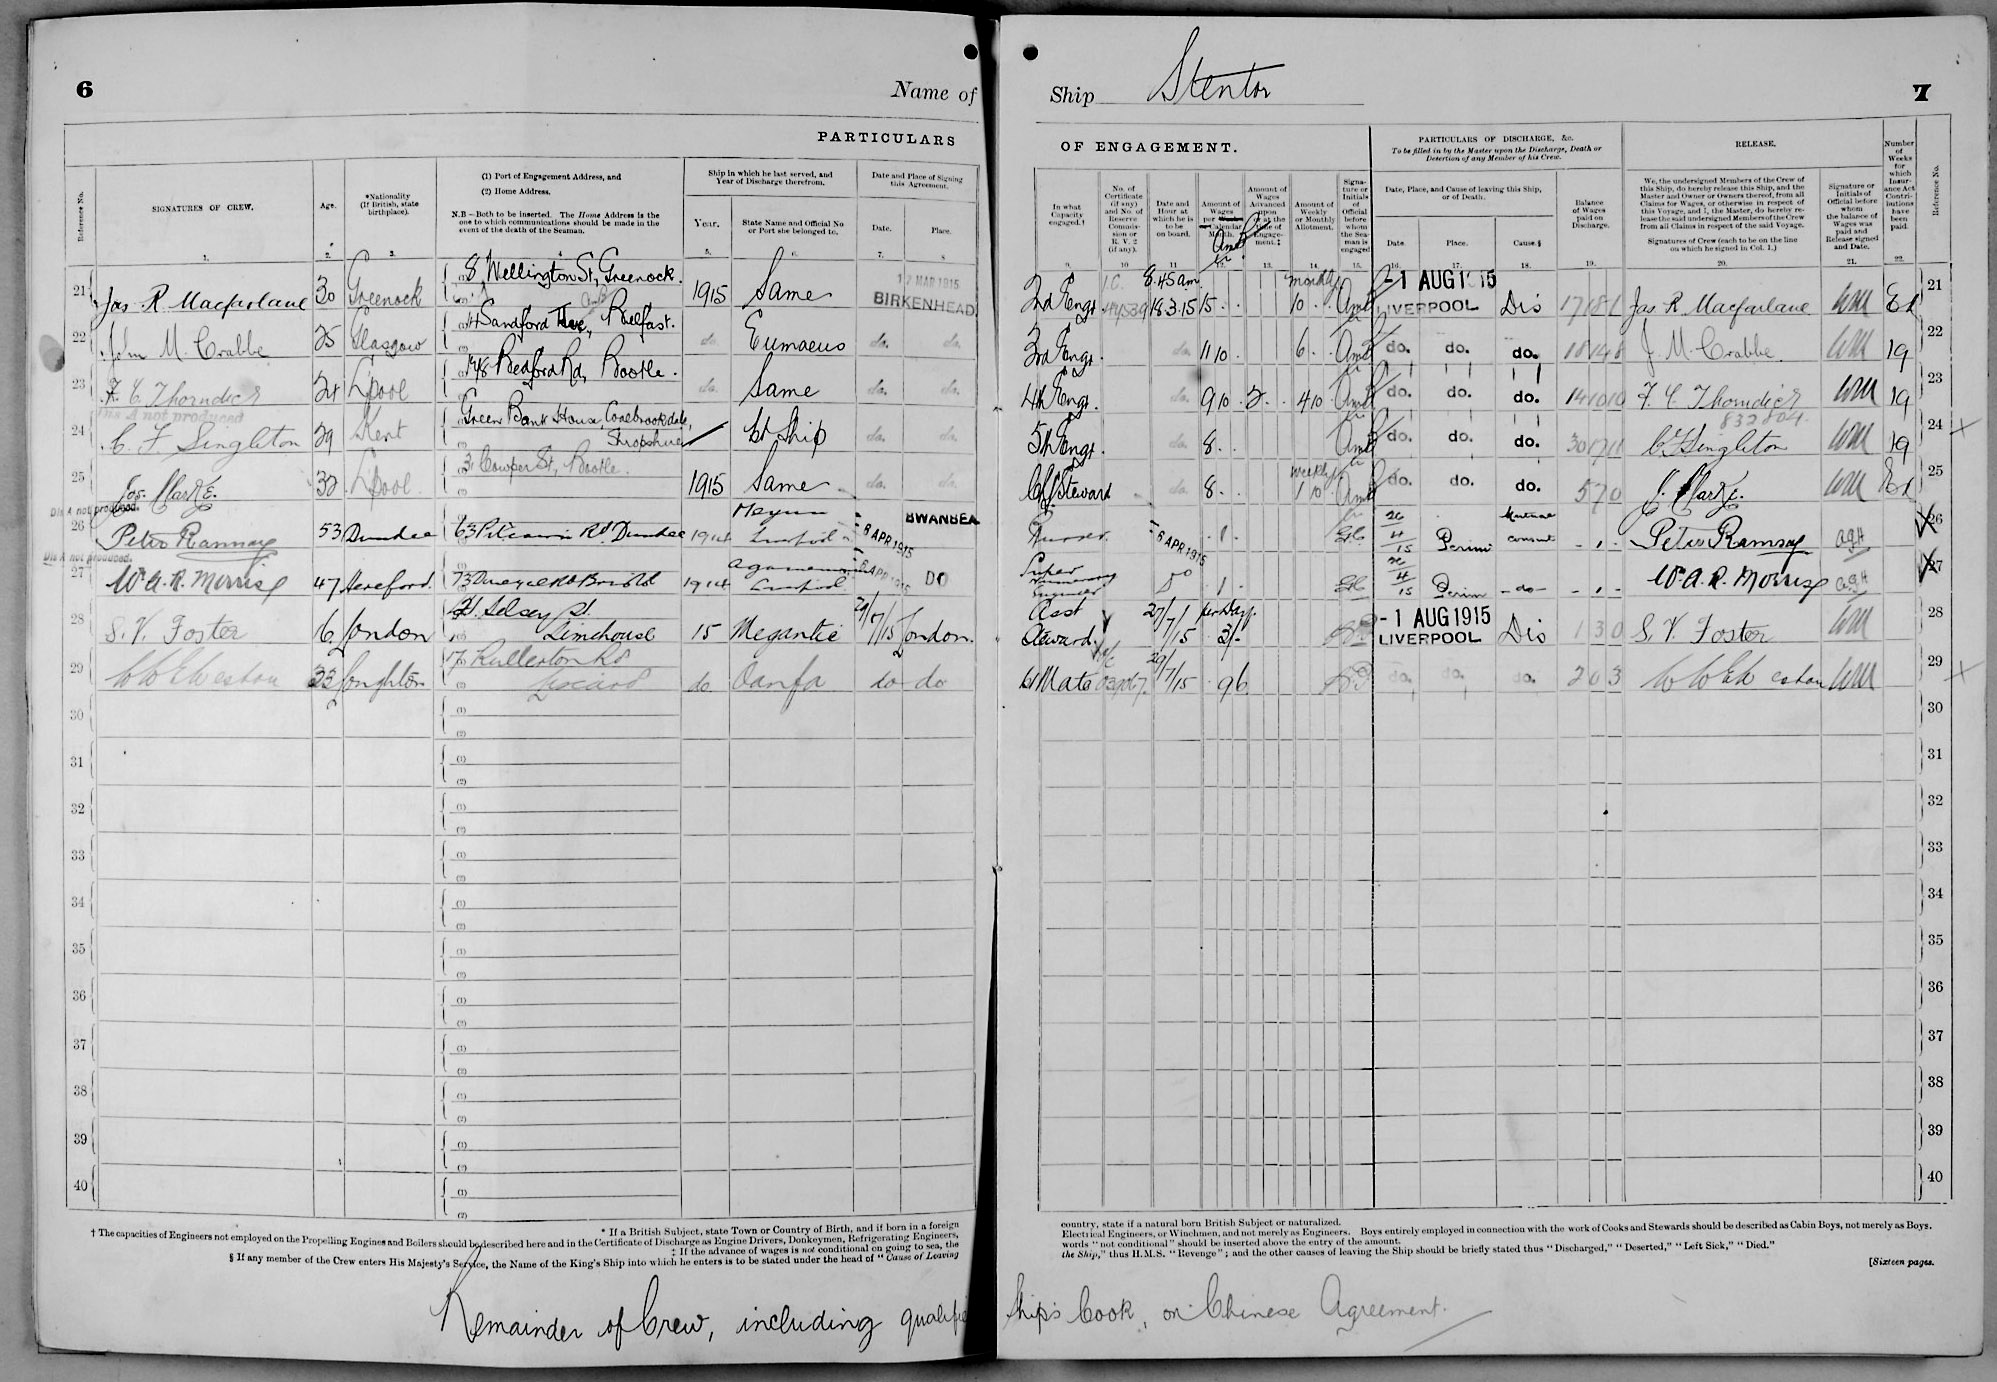 6
Name of
PARTICULARS
Reference No.
SIGNATURES OF CREW.
Age.
*Nationality (If British, state birthplace).
(1) Port of Engagement Address, and
(2) Home Address.
N.B.—Both to be inserted. The Home Address is the one to which communications should be made in the event of the death of the Seaman.
Ship in which he last served, and Year of Discharge therefrom.
Year.
State Name and Official No or Port she belonged to.
Date and Place of Signing this Agreement.
Date.
Place.
1. 2. 3. 5. 6. 7. 8
21 Jas R Macfarlane 30 Greenock 8 Wellington St, Greenock. 1915 Same 17 MAR 1915 BIRKENHEAD
22 John M. Crabbe 25 Glasgow Sandford Belfast. do. Eumaeus do. do.
23 F. C. Thorndick 24 L'pool 148 Bedford Rd, Bootle. do. Same do. do.
Dis A not produced
24 C. F. Singleton 29 Kent Green Bank House Coalbrookdale, Shropshire 1st Ship do. do.
25 Jos. Clarke. 32 L'pool 3 Cowper St, Bootle. 1915 Same do. do.
Dis A not produced.
26 Peter Ramsay 53 Dundee 63 Rd Dundee 1914 8 APR 1915 SWANSEA
Dis A not produced.
27 Wm A. R. Morris 47 Hereford. 73 Bristol 1914 8 APR 1915 DO
28 S. V. Foster 16 London Selsey St. Limehouse 15 Megantic 29/7/15 London.
29 W W E Weston 33 Loughton Rullerton Rd Liscard do Oanfa do do
30
31
32
33
34
35
36
37
38
39
40
* If a British Subject, state Town or Country of Birth, and if born in a foreign
† The capacities of Engineers not employed on the Propelling Engines and Boilers should be described here and in the Certificate of Discharge as Engine Drivers, Donkeymen, Refrigerating Engineers,
‡ If the advance of wages is not conditional on going to sea, the
§ If any member of the Crew enters His Majesty's Service, the Name of the King's Ship into which he enters is to be stated under the head of "Cause of Leaving
Remainder of Crew, including
Ship Stentor
7
OF ENGAGEMENT.
PARTICULARS OF DISCHARGE, &c.
To be filled in by the Master upon the Discharge, Death or Desertion of any Member of his Crew.
RELEASE.
Number of Weeks for which Insurance Act Contributions have been paid.
Reference No.
In what Capacity engaged.†
No. of Certificate (if any) and No. of Reserve Commission or R. V. 2 (if any).
Date and Hour at which he is to be on board.
Amount of Wages per Calendar Month.
Amount of Wages Advanced upon or at the time of Engagement.‡
Amount of Weekly or Monthly Allotment.
Signature or Initials of Official before whom the Seaman is engaged
Date, Place, and Cause of leaving this Ship, or of Death.
Date.
Place.
Cause.§
Balance of Wages paid on Discharge.
We, the undersigned Members of the Crew of this Ship, do hereby release this Ship, and the Master and Owner or Owners thereof, from all Claims for Wages, or otherwise in respect of this Voyage, and I, the Master, do hereby release the said undersigned Members of the Crew from all Claims in respect of the said Voyage.
Signatures of Crew (each to be on the line on which he signed in Col. 1.)
Signature or Initials of Official before whom the balance of Wages was paid and Release signed and Date.
9. 10 11 12. 13. 14. 15. 16. 17. 18. 19. 20. 21. 22.
2nd Engr 8.45 am 18.3.15 15 monthly 10 1 AUG 1915 LIVERPOOL Dis Jas R Macfarlane 21
3rd Engr. do. 11 10 6 do. do. do. J. M. Crabbe 19 22
4th Engr. do. 9 10 2 4 10 do. do. do. 14 10 10 F. C. Thorndick 19 23
832804
5th Engr. do. 8 do. do. do. 30 17 11 C. F. Singleton 19 24
Ch Steward do. 8 weekly 1 10 do. do. do. 5 7 0 J. Clarke. 25
8 APR 1915 1 26/4/15 Perim Mutual consent - 1 - Peter Ramsay AGH 26
Super Engineer Do 1 26/4/15 Perim - do - - 1 - Wm A. R. Morris AGH 27
Asst Steward 27/7/15 per Day. 3/- 1 AUG 1915 LIVERPOOL Dis 1 3 0 S. V. Foster 28
Mate 29/7/15 do. do. do. 2 0 3 W W E Weston 29
30
31
32
33
34
35
36
37
38
39
40
country, state if a natural born British Subject or naturalized.
Electrical Engineers, or Winchmen, and not merely as Engineers. Boys entirely employed in connection with the work of Cooks and Stewards should be described as Cabin Boys, not merely as Boys.
words "not conditional" should be inserted above the entry of the amount.
the Ship," thus H.M.S. "Revenge"; and the other causes of leaving the Ship should be briefly stated thus "Discharged," "Deserted," "Left Sick," "Died."
[Sixteen pages.
Ship's Cook, on Chinese Agreement.